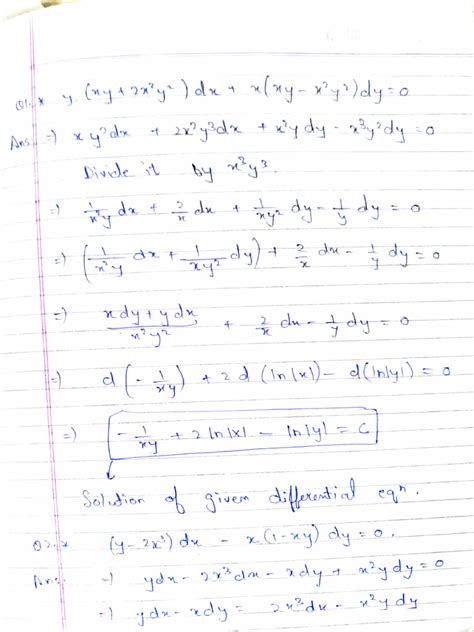 Q1.* y (xy + 2x²y²) dx + x(xy - x²y²) dy = 0
Ans. => xy²dx + 2x²y³dx + x²y dy - x³y²dy = 0
Divide it by x³y³.
=> 1/x²y dx + 2/x dx + 1/xy² dy - 1/y dy = 0
=> (1/x²y dx + 1/xy² dy) + 2/x dx - 1/y dy = 0
=> xdy + ydx / x²y² + 2/x dx - 1/y dy = 0
=> d(-1/xy) + 2d(ln|x|) - d(ln|y|) = 0
=> -1/xy + 2 ln|x| - ln|y| = C
Solution of given differential eqⁿ.
Q2.* (y - 2x³) dx - x(1 - xy) dy = 0.
Ans. => ydx - 2x³dx - xdy + x²ydy = 0
=> ydx - xdy = 2x³dx - x²ydy